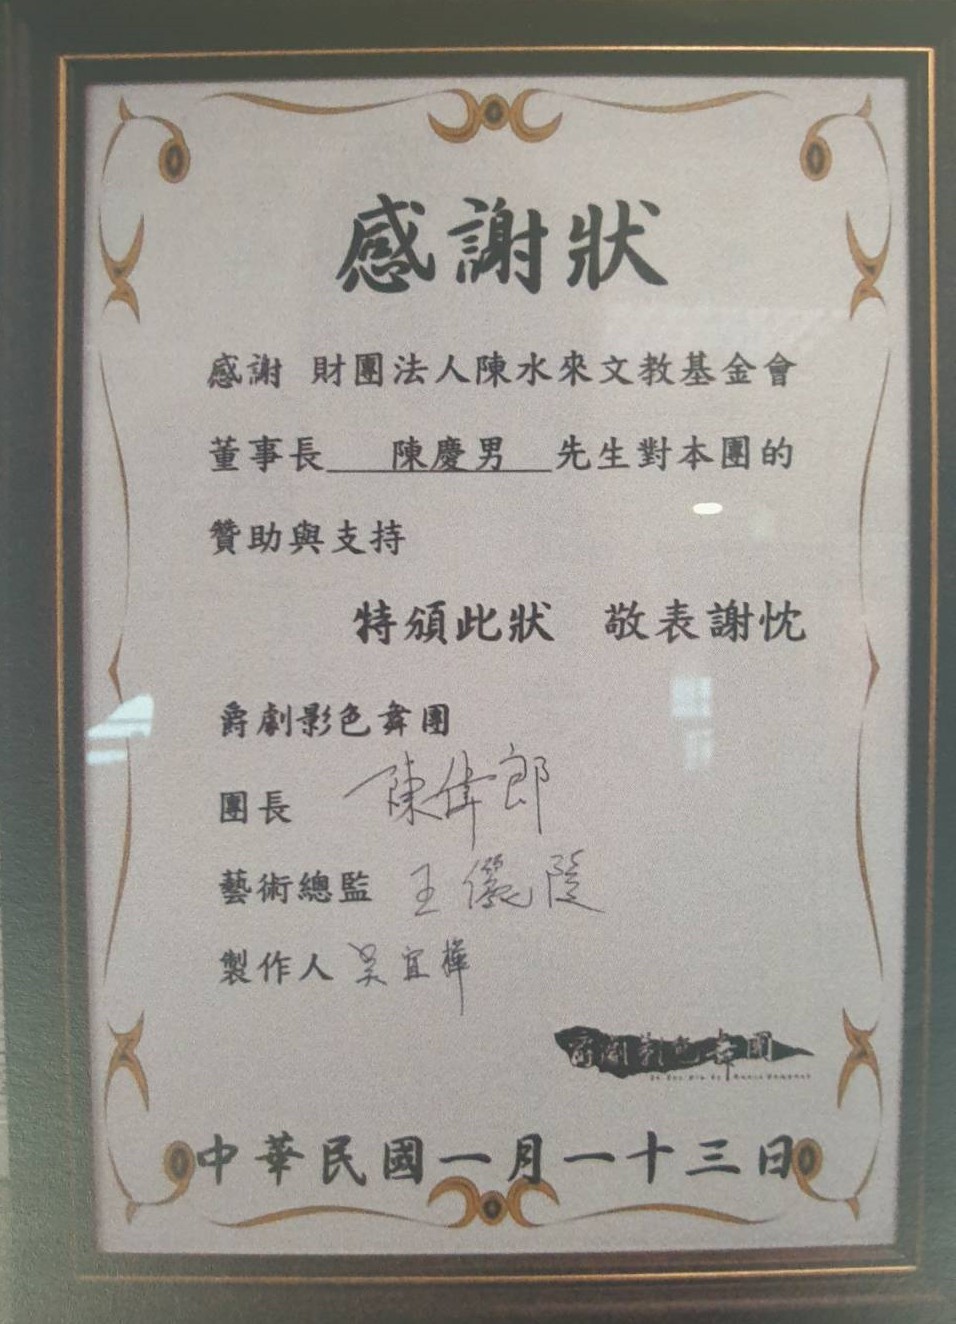 感謝狀
感謝 財團法人陳水來文教基金會
董事長 陳慶男 先生對本團的
贊助與支持
特頒此狀 敬表謝忱
爵劇影色舞團
團長 陳偉郎
藝術總監 王儷陵
製作人 吳宜樺
爵劇影色舞團
中華民國一月一十三日